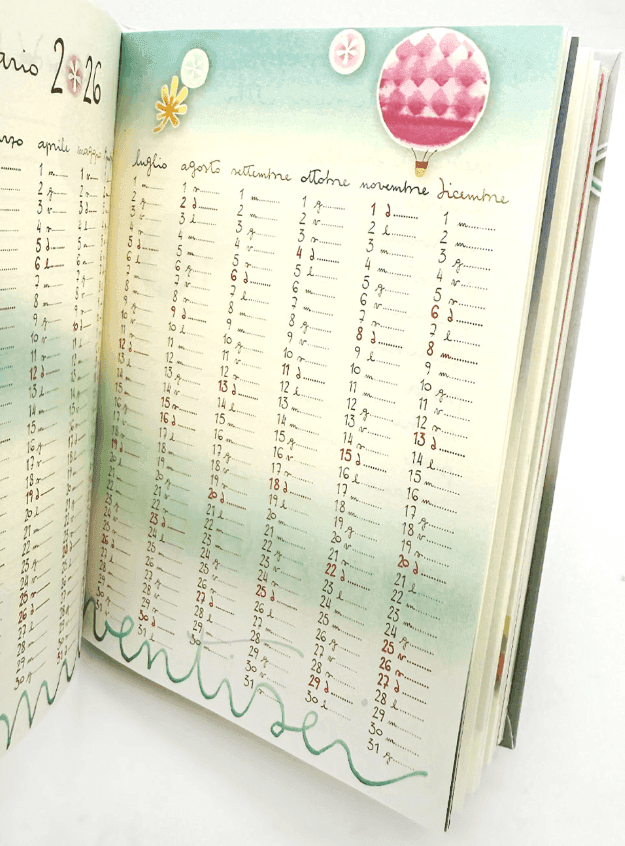 ario 2026
rzo
aprile
1 m
2 g
3 v
4 s
5 d
6 l
7 m
8 m
9 g
10 v
11 s
12 d
13 l
14 m
15 m
16 g
17 v
18 s
19 d
20 l
21 m
22 m
23 g
24 v
25 s
26 d
27 l
28 m
29 m
30 g
maggio
1 v
2 s
3 d
4 l
luglio
1 m
2 g
3 v
4 s
5 d
6 l
7 m
8 m
9 g
10 v
11 s
12 d
13 l
14 m
15 m
16 g
17 v
18 s
19 d
20 l
21 m
22 m
23 g
24 v
25 s
26 d
27 l
28 m
29 m
30 g
31 v
agosto
1 s
2 d
3 l
4 m
5 m
6 g
7 v
8 s
9 d
10 l
11 m
12 m
13 g
14 v
15 s
16 d
17 l
18 m
19 m
20 g
21 v
22 s
23 d
24 l
25 m
26 m
27 g
28 v
29 s
30 d
31 l
settembre
1 m
2 m
3 g
4 v
5 s
6 d
7 l
8 m
9 m
10 g
11 v
12 s
13 d
14 l
15 m
16 m
17 g
18 v
19 s
20 d
21 l
22 m
23 m
24 g
25 v
26 s
27 d
28 l
29 m
30 m
ottobre
1 g
2 v
3 s
4 d
5 l
6 m
7 m
8 g
9 v
10 s
11 d
12 l
13 m
14 m
15 g
16 v
17 s
18 d
19 l
20 m
21 m
22 g
23 v
24 s
25 d
26 l
27 m
28 m
29 g
30 v
31 s
novembre
1 d
2 l
3 m
4 m
5 g
6 v
7 s
8 d
9 l
10 m
11 m
12 g
13 v
14 s
15 d
16 l
17 m
18 m
19 g
20 v
21 s
22 d
23 l
24 m
25 m
26 g
27 v
28 s
29 d
30 l
dicembre
1 m
2 m
3 g
4 v
5 s
6 d
7 l
8 m
9 m
10 g
11 v
12 s
13 d
14 l
15 m
16 m
17 g
18 v
19 s
20 d
21 l
22 m
23 m
24 g
25 v
26 s
27 d
28 l
29 m
30 m
31 g
ventisei